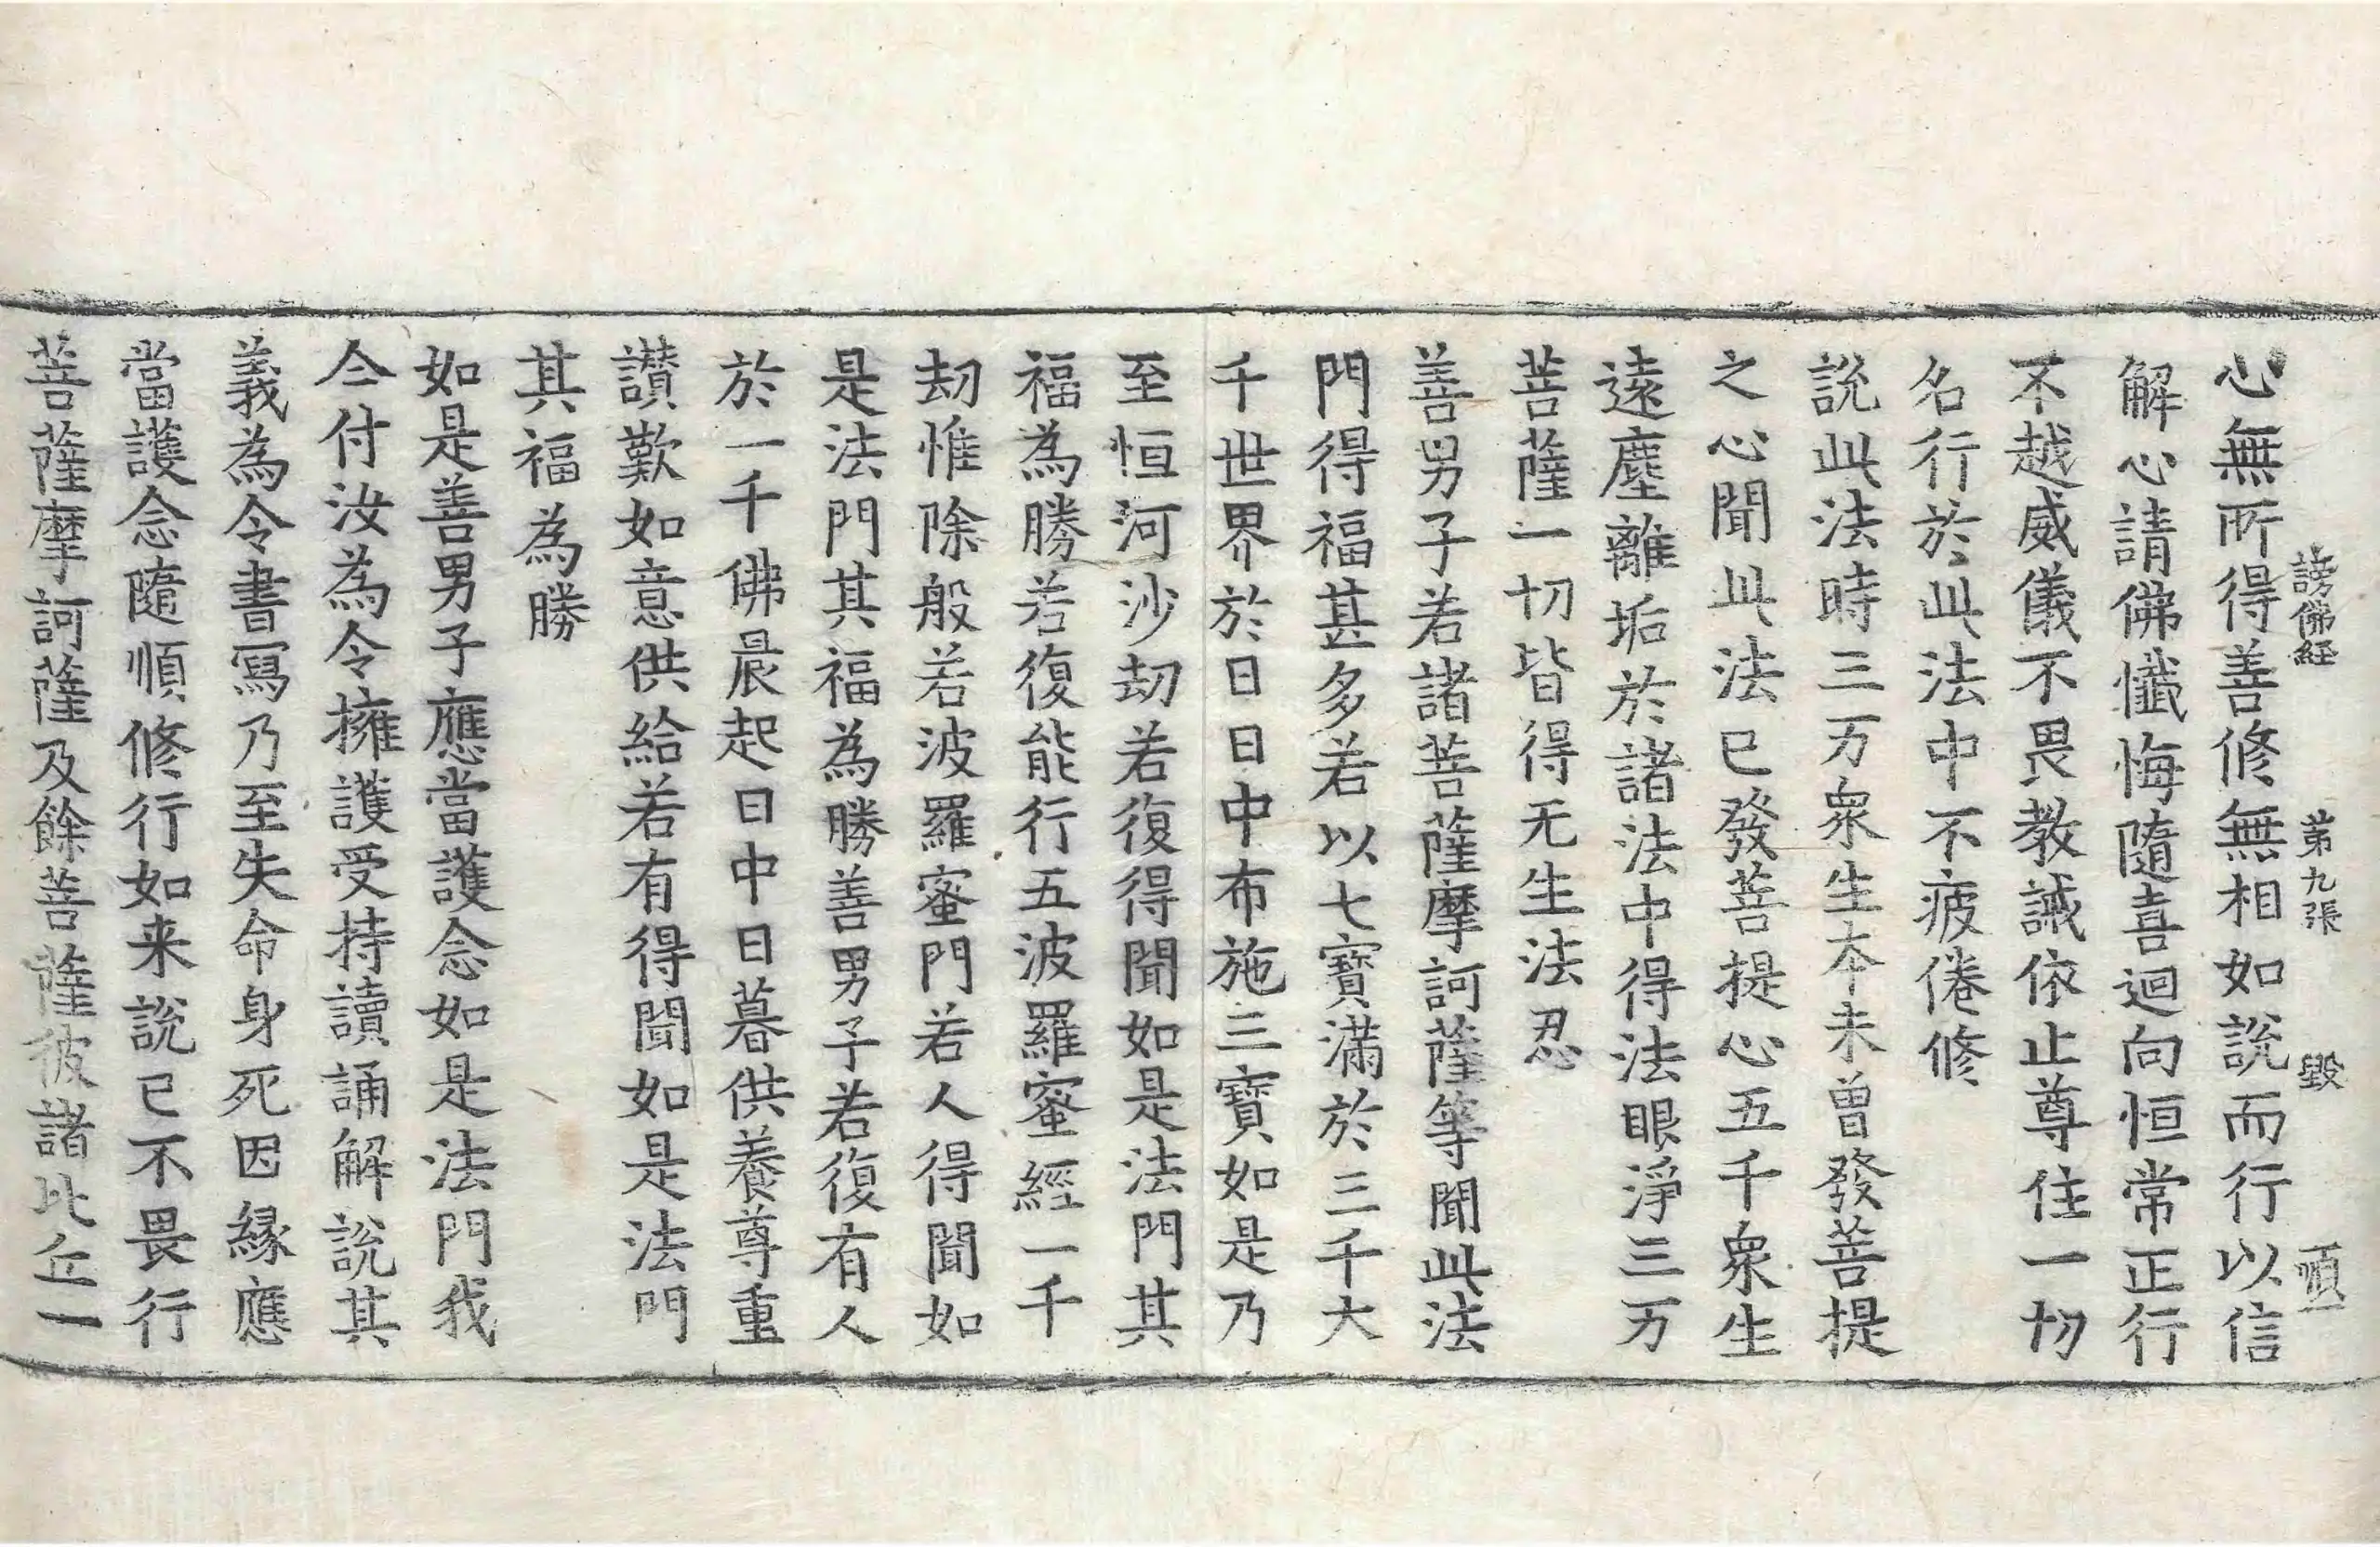 謗佛経 第九張 毀 頃
心無所得善修無相如說而行以信
解心請佛懺悔隨喜迴向恒常正行
不越威儀不畏教誡依止尊住一切
名行於此法中不疲倦修
說此法時三万衆生本未曾發菩提
之心聞此法已發菩提心五千衆生
遠塵離垢於諸法中得法眼淨三万
菩薩一切皆得无生法忍
善男子若諸菩薩摩訶薩等聞此法
門得福甚多若以七寶滿於三千大
千世界於日日中布施三寶如是乃
至恒河沙劫若復得聞如是法門其
福為勝若復能行五波羅蜜經一千
劫惟除般若波羅蜜門若人得聞如
是法門其福為勝善男子若復有人
於一千佛晨起日中日暮供養尊重
讃歎如意供給若有得聞如是法門
其福為勝
如是善男子應當護念如是法門我
今付汝為令擁護受持讀誦解說其
義為令書寫乃至失命身死因縁應
當護念隨順修行如来說已不畏行
菩薩摩訶薩及餘菩薩彼諸比丘一